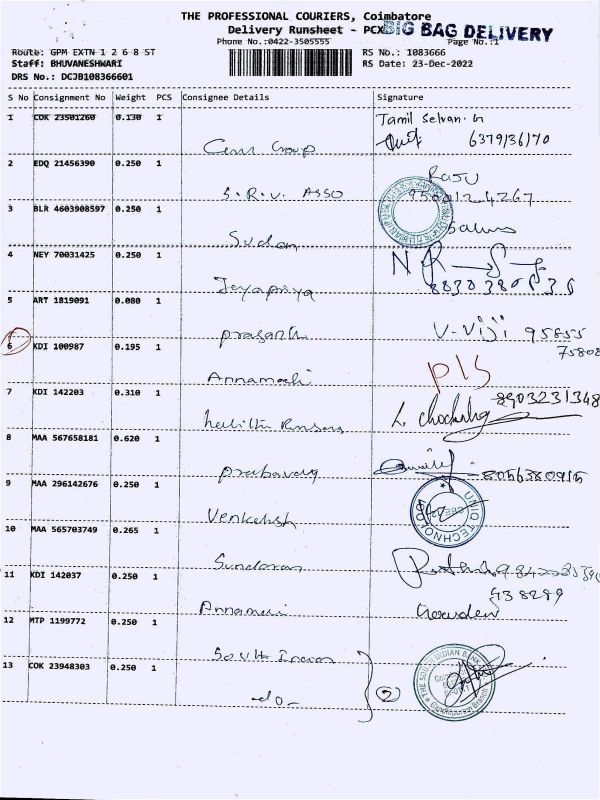 THE PROFESSIONAL COURIERS, Coimbatore
Delivery Runsheet - PCX BIG BAG DELIVERY
Phone No.:0422-3505555 Page No.:1
Route: GPM EXTN 1 2 6 8 ST RS No.: 1083666
Staff: BHUVANESHWARI RS Date: 23-Dec-2022
DRS No.: DCJB108366601
S No Consignment No Weight PCS Consignee Details Signature
1 COK 23501260 0.130 1 Tamil Selvan. G
6379136170
2 EDQ 21456390 0.250 1 Raju
S.R.V. ASSO
3 BLR 4603908597 0.250 1
Sudan
4 NEY 70031425 0.250 1
Jeyapriya
5 ART 1819091 0.080 1
prasanth V-Viji 95855
75808
6 KDI 100987 0.195 1
Annamali PIS
7 KDI 142203 0.310 1 8903231348
8 MAA 567658181 0.620 1
8056380915
9 MAA 296142676 0.250 1 UNIQ TECHNOLOGY
Venkatesh
10 MAA 565703749 0.265 1
Sundaram
11 KDI 142037 0.250 1
Annamali
12 MTP 1199772 0.250 1
South Indian
13 COK 23948303 0.250 1 THE SOUTH INDIAN BANK
-do- 2